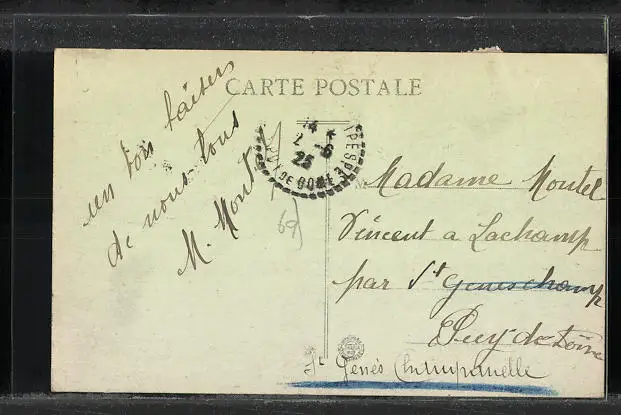 CARTE POSTALE
un bon baiser
de nous tous
M. Mont
14 *
2 - 6
25
PUY DE DOME
Madame Montel
Vincent a Lachamp
par St Geneschamp
Puy de Dôme
St Genès Champanelle
69